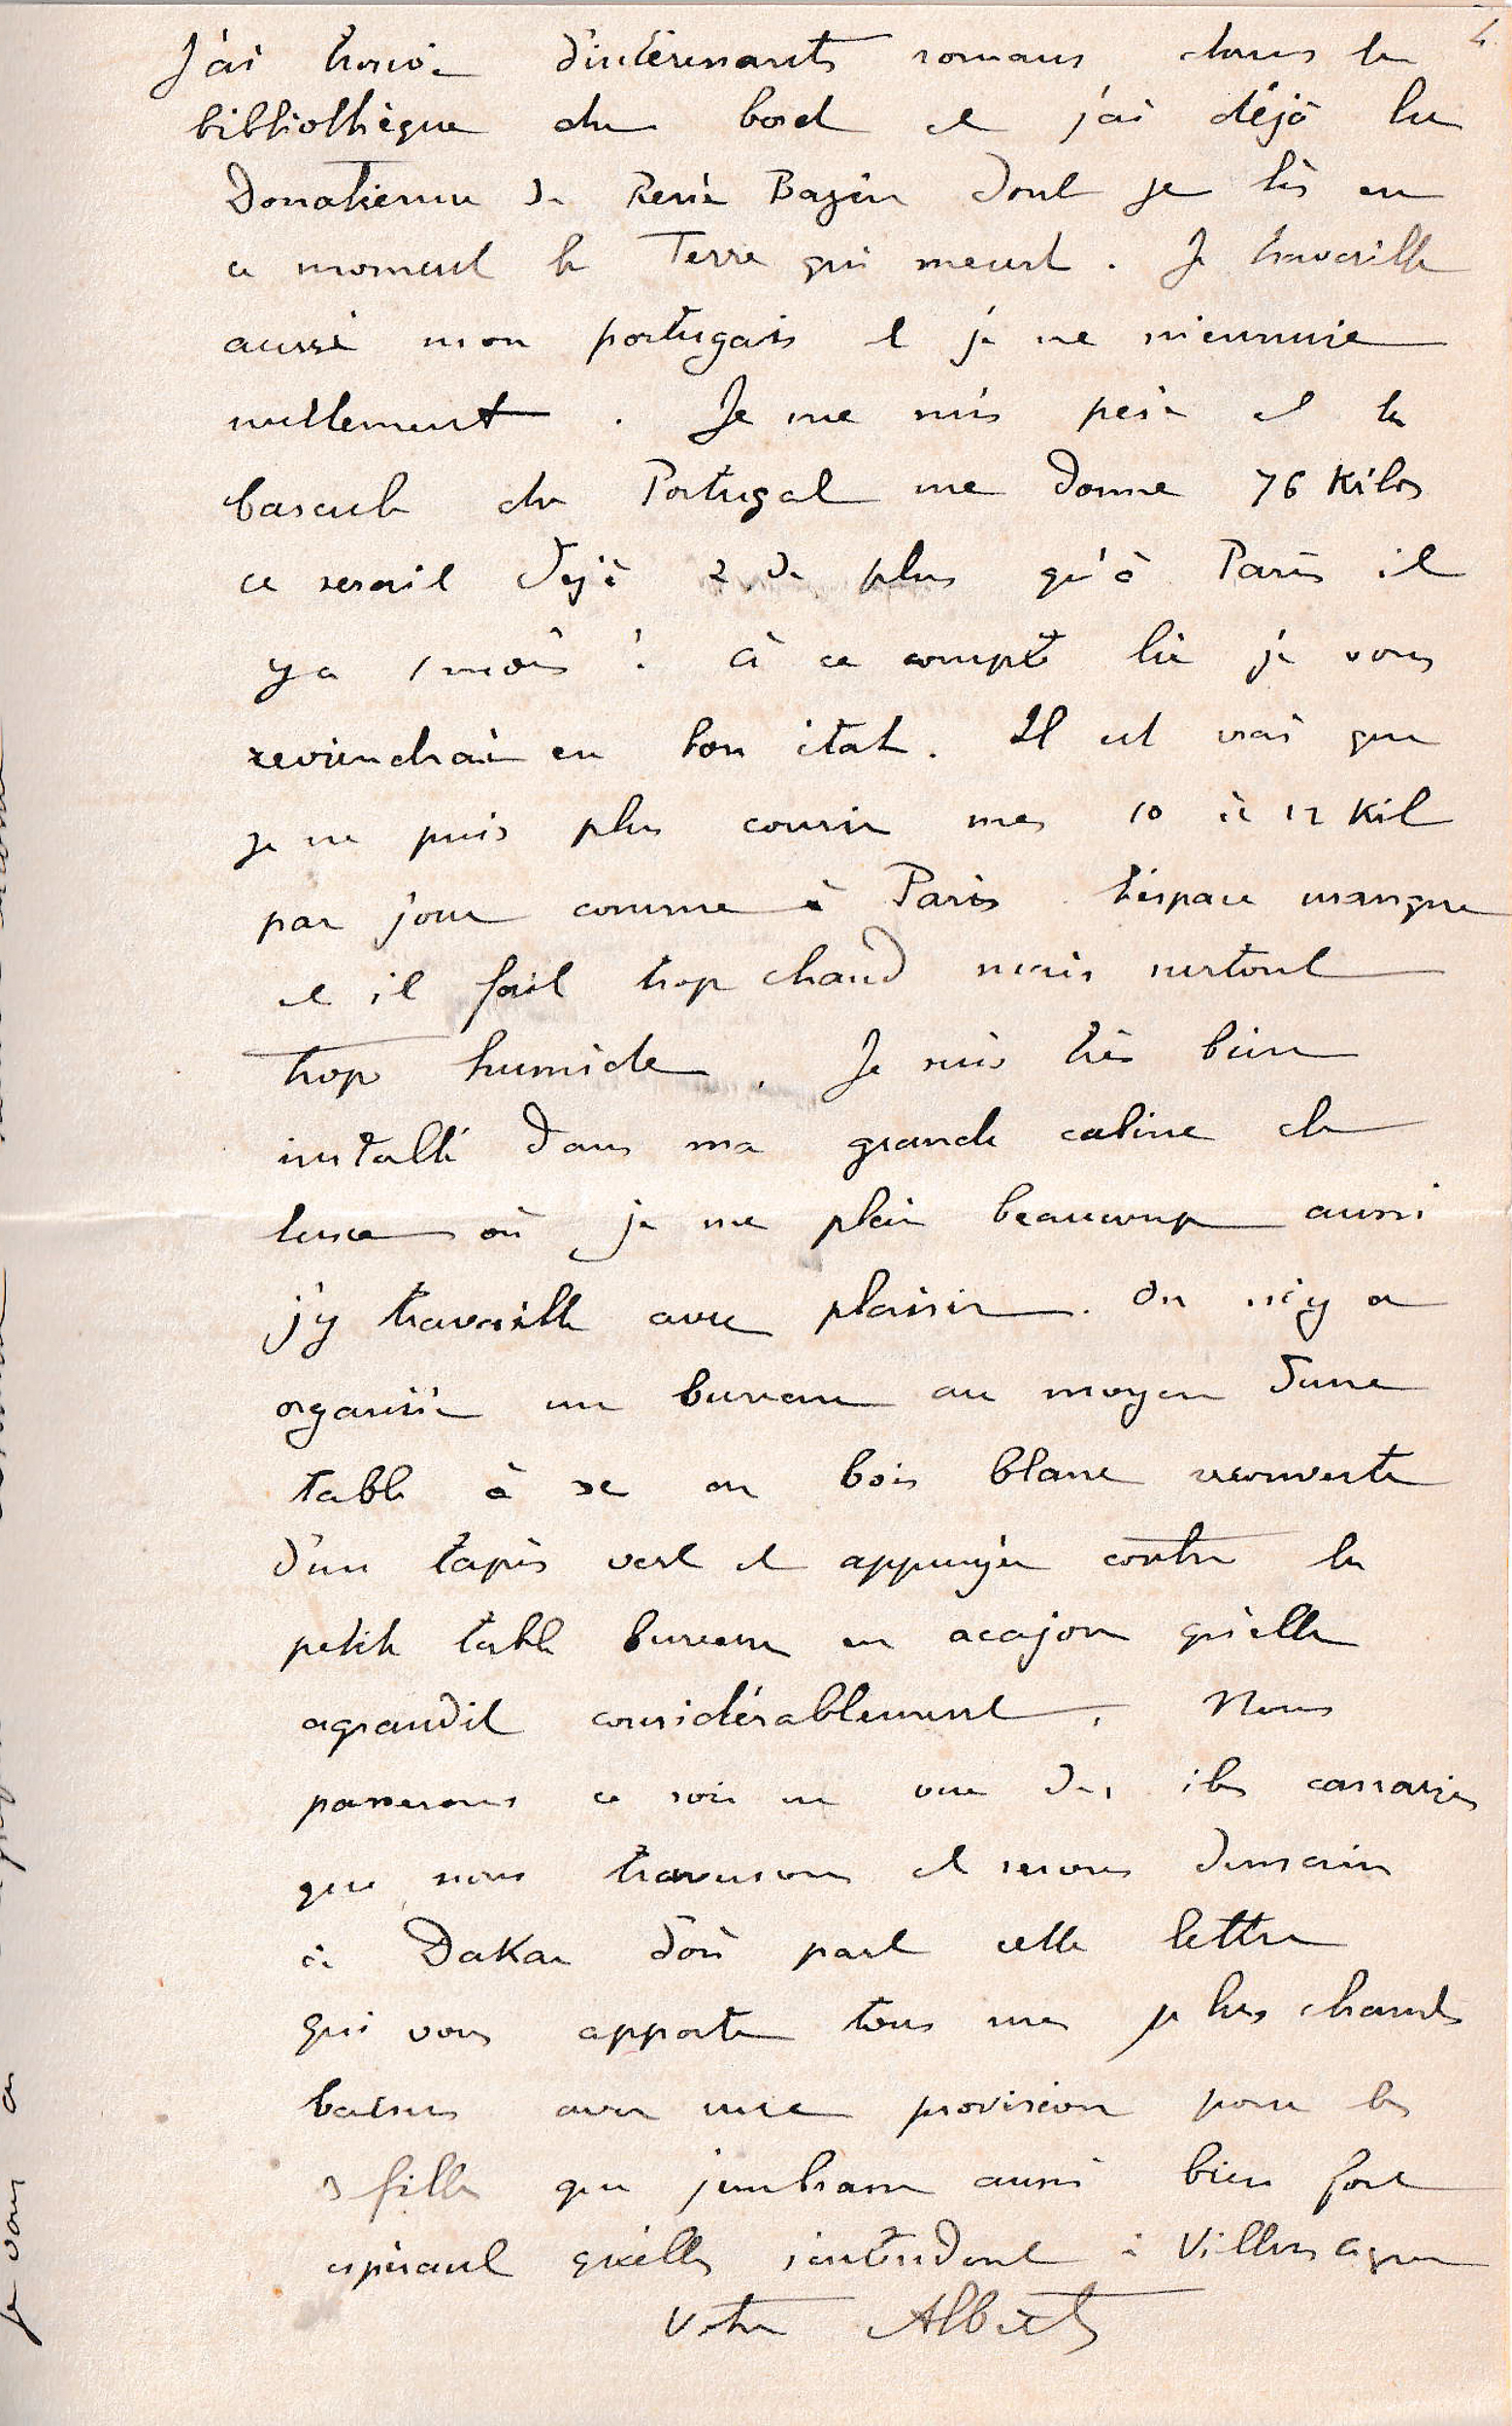 4.
J'ai trouvé d'intéressants romans dans la
bibliothèque du bord et j'ai déjà lu
Donatienne de René Bazin dont je lis en
ce moment la Terre qui meurt. Je travaille
aussi mon portugais et je ne m'ennuie
nullement. Je me suis pesé et la
bascule du Portugal me donne 76 Kilos
ce serait déjà 2 de plus qu'à Paris il
y a 1 mois ! à ce compte là je vous
reviendrai en bon état. Il est vrai que
je ne puis plus courir mes 10 à 12 Kil
par jour comme à Paris l'espace manque
et il fait trop chaud mais surtout
trop humide. Je suis très bien
installé dans ma grande cabine de
luxe où je me plais beaucoup aussi
j'y travaille avec plaisir. On m'y a
organisé un bureau au moyen d'une
table à en bois blanc recouverte
d'un tapis vert et appuyée contre la
petite table bureau en acajou qu'elle
agrandit considérablement. Nous
passerons ce soir en vue des iles canaries
que nous traversons et serons demain
à Dakar d'où part cette lettre
qui vous apporte tous mes plus chauds
baisers avec une provision pour les
3 filles que j'embrasse aussi bien fort
espérant qu'elles s'entendent à
Votre Albert
je vous